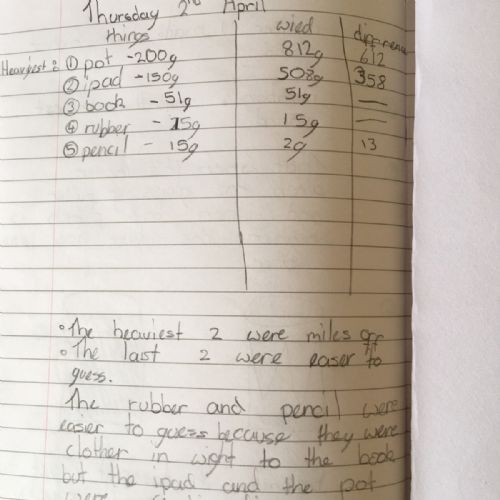 Thursday 2nd April
things wied difference
Heaviest: ① pot -200g 812g 612
② ipad -150g 508g 358
③ book - 51g 51g —
④ rubber - 15g 15g —
⑤ pencil - 15g 2g 13
• The heaviest 2 were miles off
• The last 2 were easer to
guess.
The rubber and pencil were
easer to guess because they were
clother in wight to the book
but the ipad and the pot
were